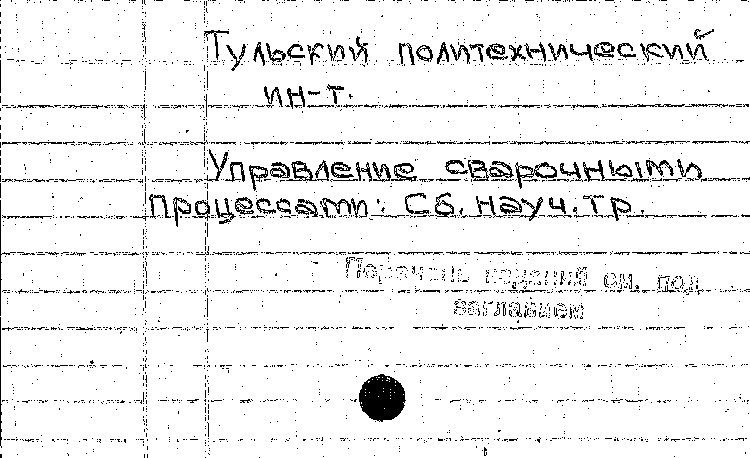 Тульский политехнический
ин-т.
Управление сварочными
процессами: Сб. науч. тр.
Перечень изданий см. под
заглавием